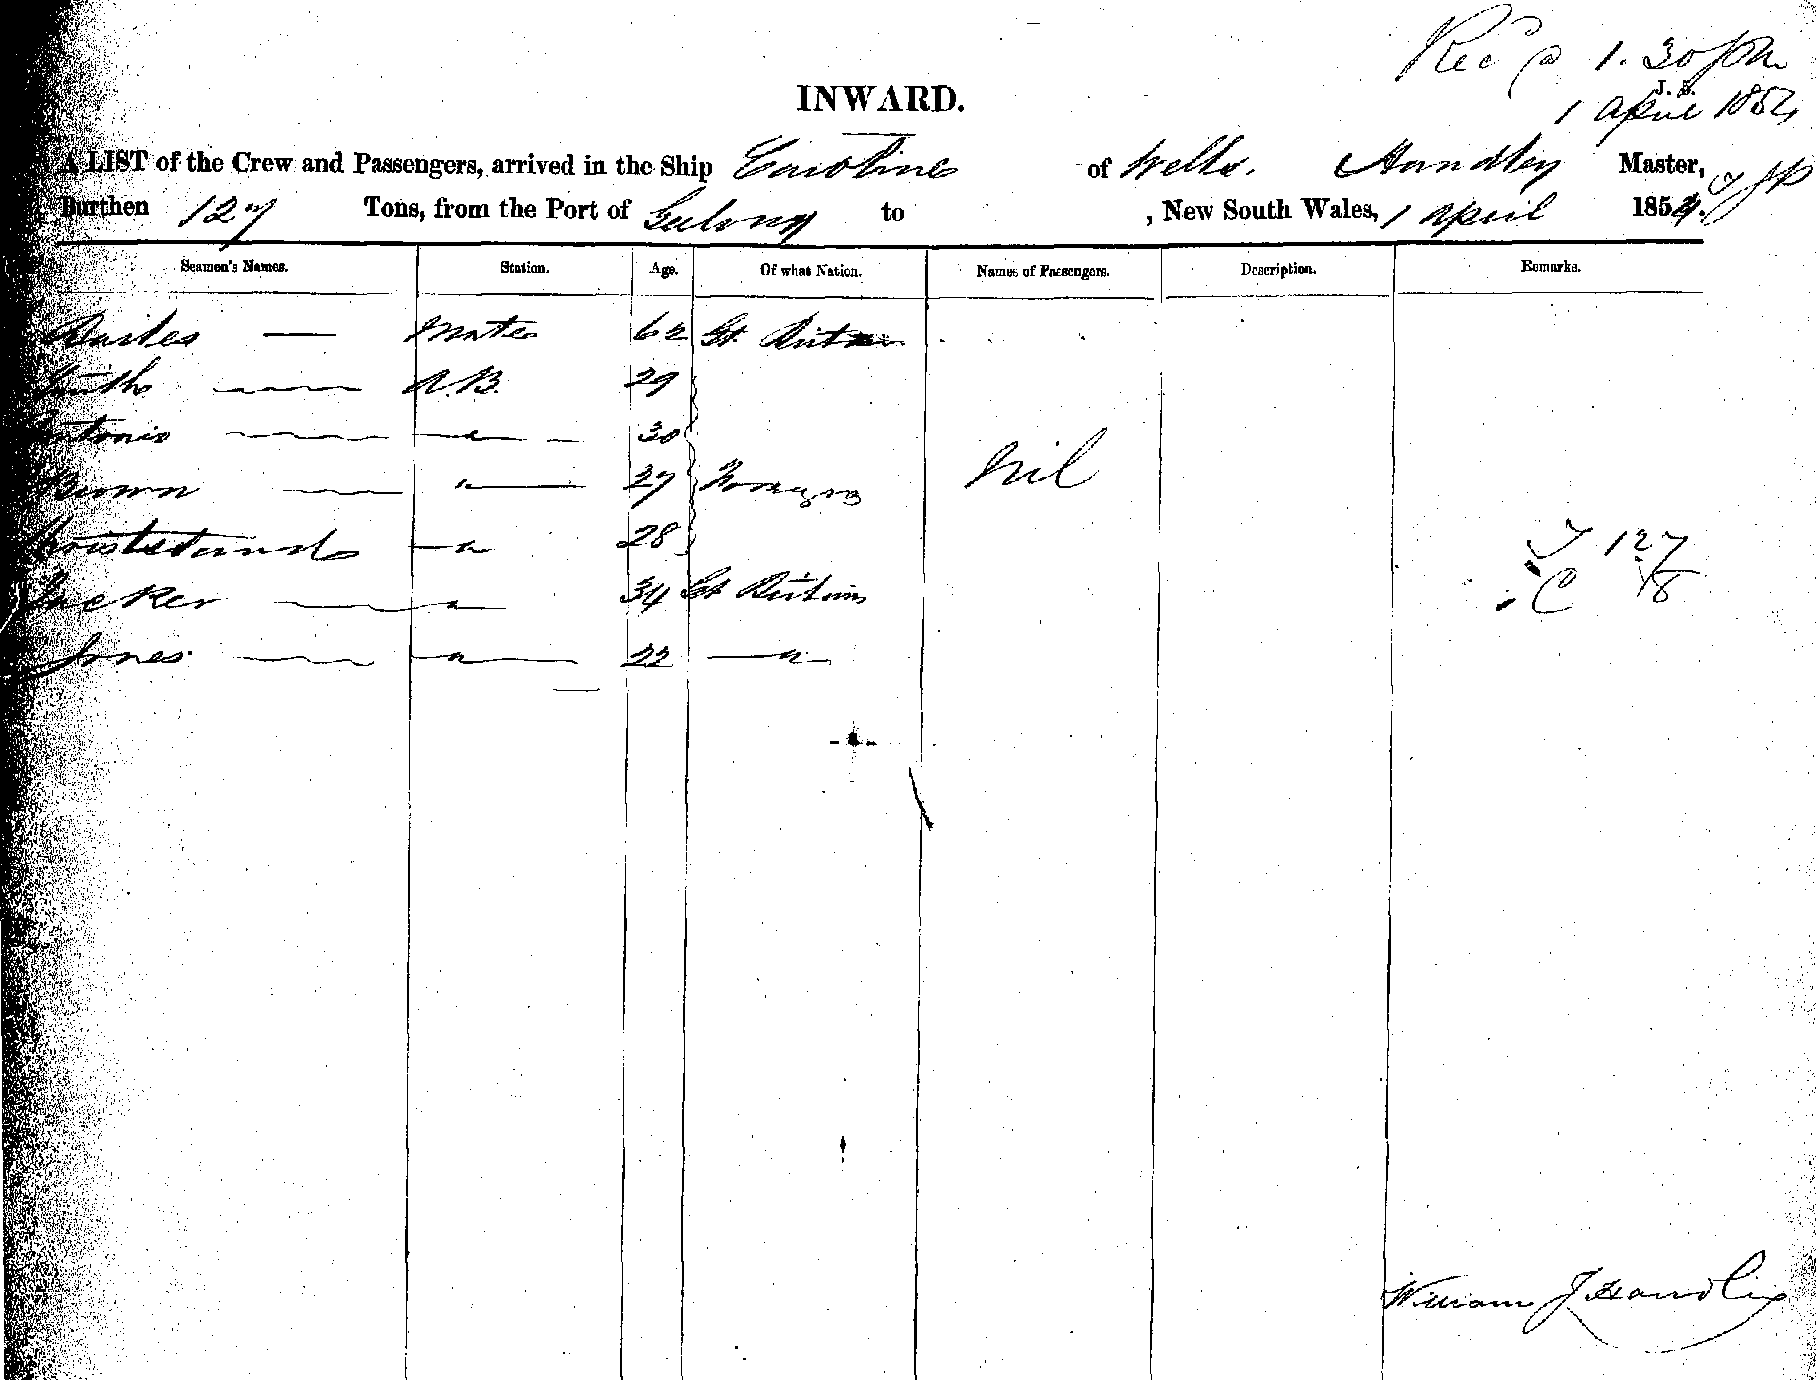 Rec'd @ 1.30 pm
J.B.
1 April 1854
INWARD.
A LIST of the Crew and Passengers, arrived in the Ship Caroline of Wells. Handley Master,
Burthen 127 Tons, from the Port of Geelong to , New South Wales, 1 April 1854.
Seamen's Names. Station. Age. Of what Nation. Names of Passengers. Description. Remarks.
Mate 62 Gt. Britain
Smith A.B. 29
Antonio " 30
Brown " 27 Foreigns nil
" 28 T 127
Tucker " 34 Gt Britain C 8
Jones " 22 "
William J Handley